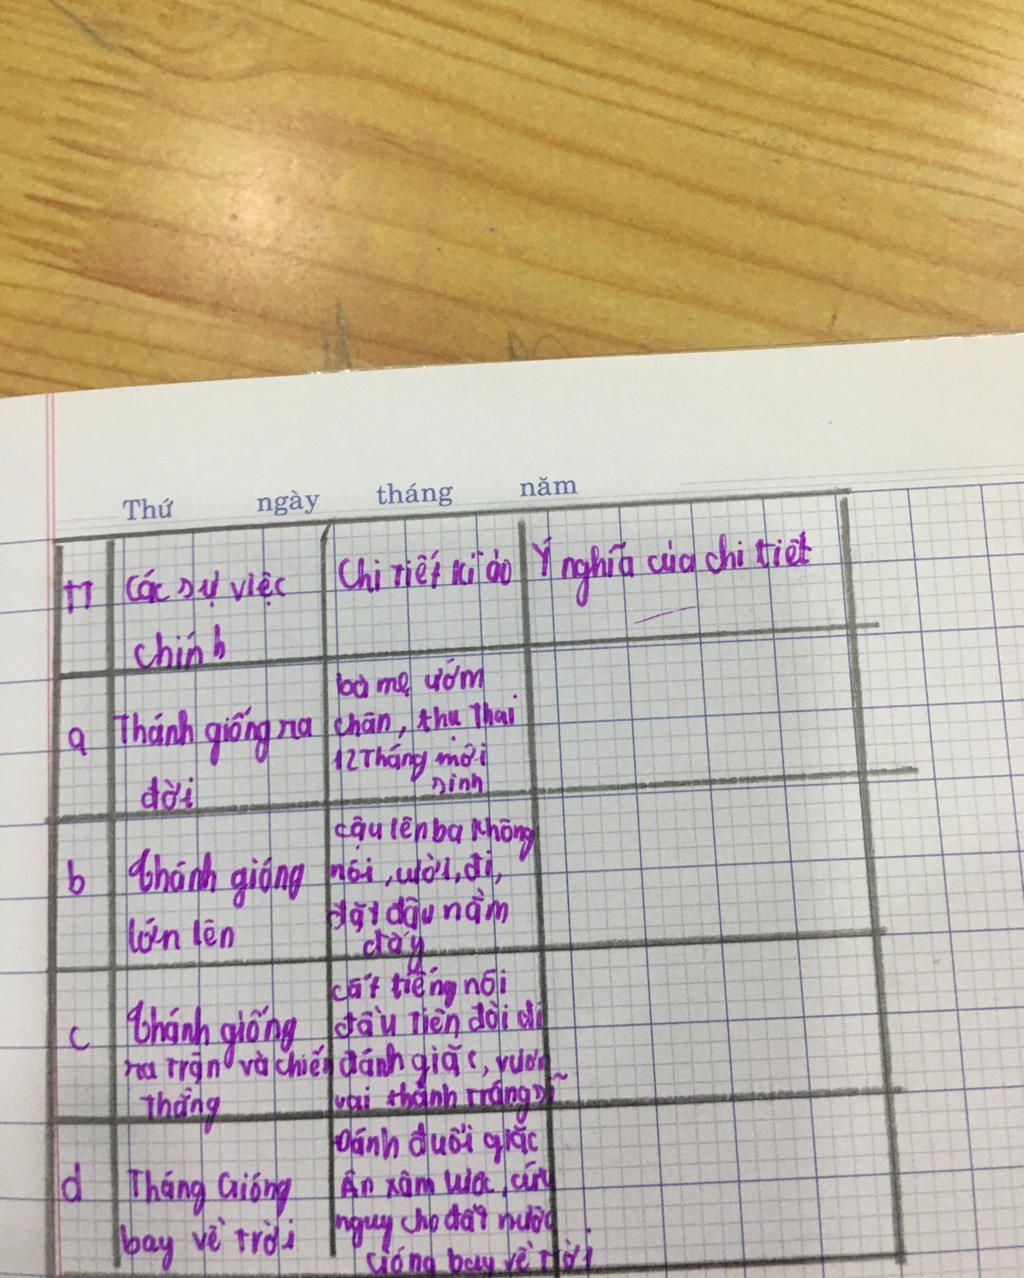 Thứ ngày tháng năm
TT Các sự việc chính Chi tiết kì ảo Ý nghĩa của chi tiết
a Thánh giống ra đời
bà mẹ ướm
chân, thụ thai
12 tháng mới
sinh
b Thánh gióng lớn lên
cậu lên ba không
nói, cười, đi,
đặt đâu nằm
đấy
c Thánh giống
ra trận và chiến
thắng
cất tiếng nói
đầu tiên đòi đi
đánh giặc, vươn
vai thành tráng sĩ
d Tháng Gióng
bay về trời
Đánh đuổi giặc
Ân xâm lược, cứu
nguy cho đất nước
Gióng bay về trời